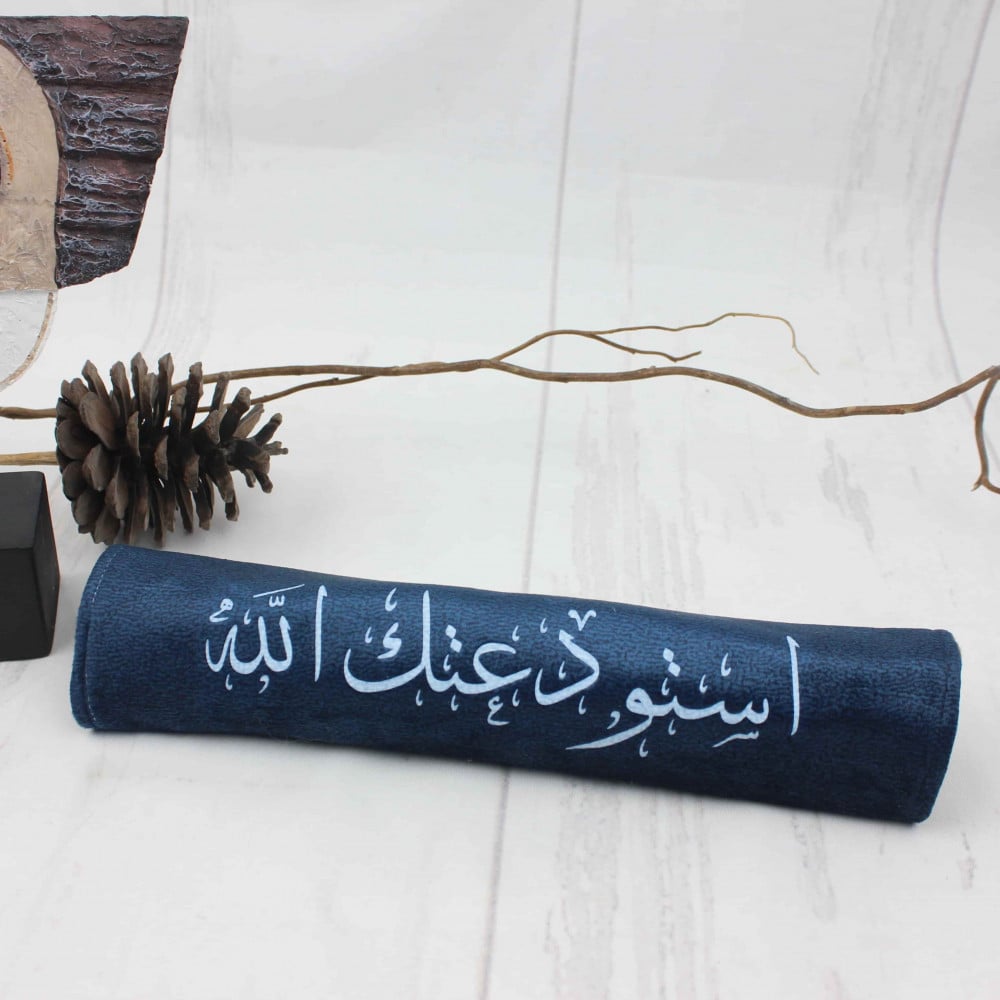 استودعتك الله